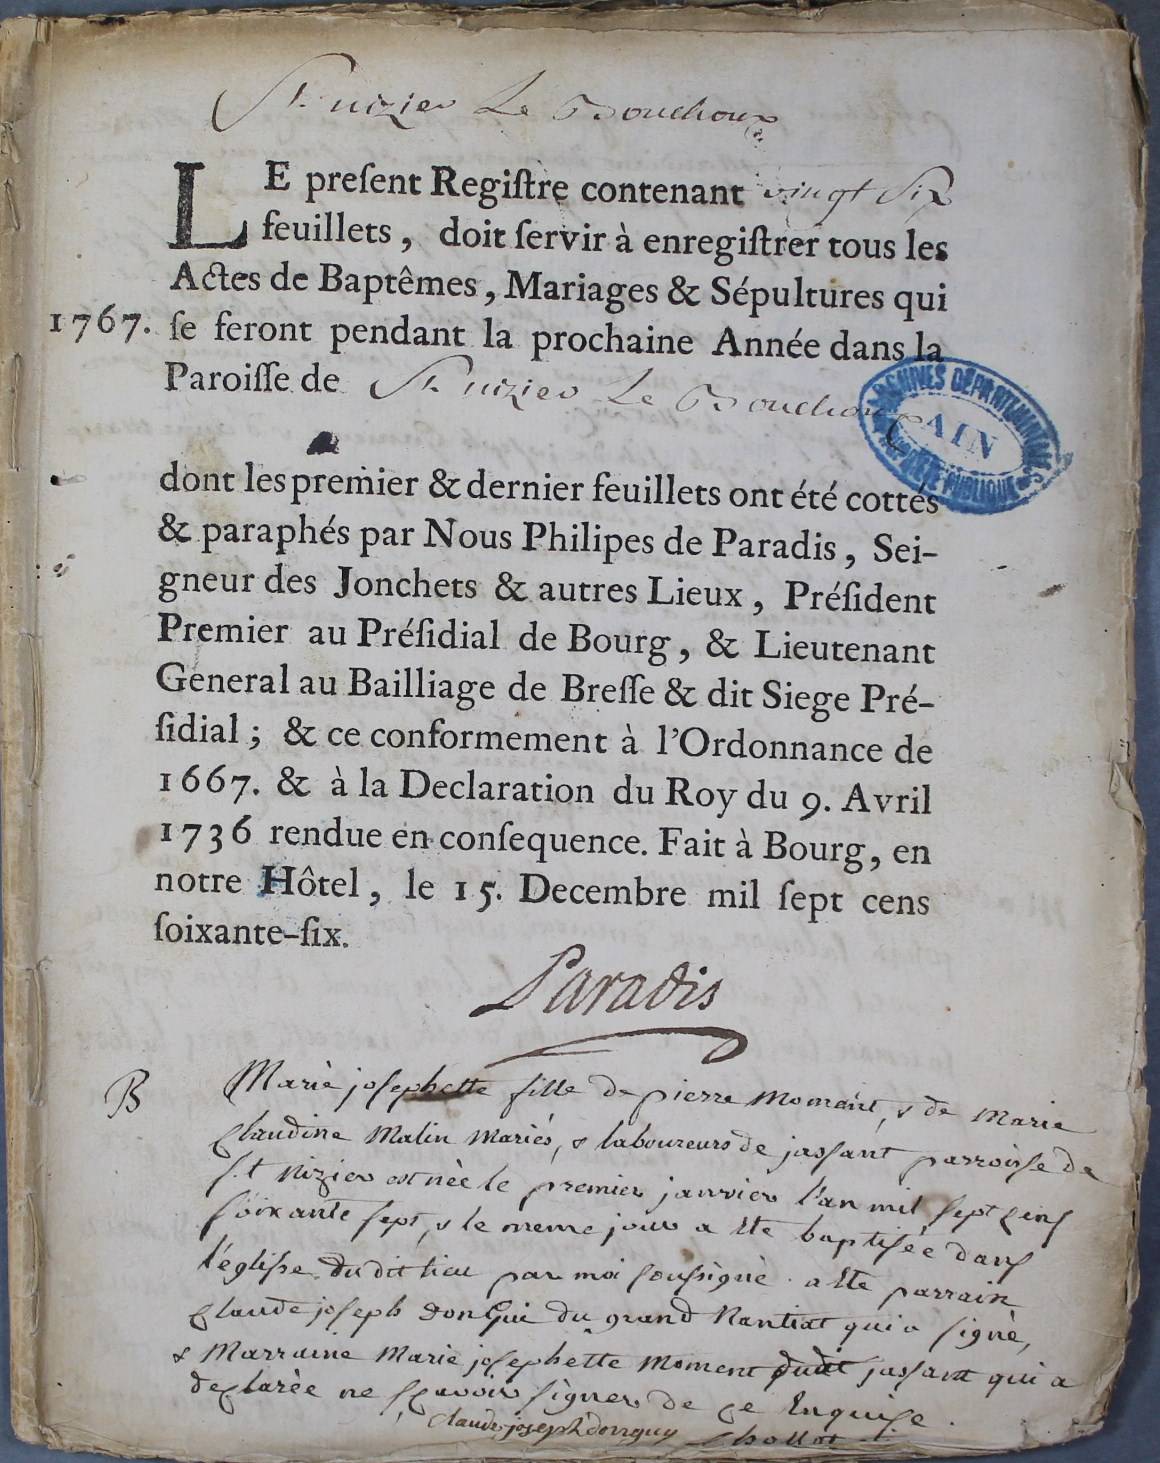 St. nizier Le Bouchoux
LE preſent Regiſtre contenant vingt Six
feuillets, doit ſervir à enregiſtrer tous les
Actes de Baptêmes, Mariages & Sépultures qui
1767. ſe feront pendant la prochaine Année dans la
Paroiſſe de St. nizier Le Bouchoux
ARCHIVES DÉPARTEMENTALES
AIN
RÉPUBLIQUE
dont les premier & dernier feuillets ont été cottés
& paraphés par Nous Philipes de Paradis, Sei-
gneur des Jonchets & autres Lieux, Préſident
Premier au Préſidial de Bourg, & Lieutenant
General au Bailliage de Breſſe & dit Siege Pré-
ſidial; & ce conformement à l'Ordonnance de
1667. & à la Declaration du Roy du 9. Avril
1736 rendue en conſequence. Fait à Bourg, en
notre Hôtel, le 15. Decembre mil ſept cens
ſoixante-ſix.
Paradis
B Marie joſephette fille de pierre Moment, & de Marie
Claudine Malin Mariés, & laboureurs de jaſſant parroiſse de
St Nizier est née le premier janvier l'an mil ſept cens
ſoixante ſept, & le meme jour a ete baptiſée dans
l'égliſse dudit lieu par moi ſouſsigné. a ete parrain
Claude joſeph donGui du grand Nantiat qui a ſigné,
& Marraine Marie joſephette Moment dudit jaſſant qui a
declarée ne ſçavoir ſigner de ce Enquiſe.
claude joseph donguy Chollat